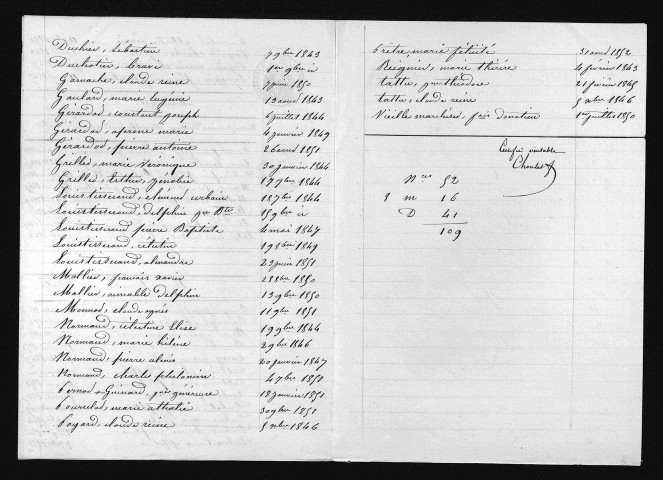 Duchier, Sébastien 7 9bre 1843
Duchaton, 1er 9bre
Garnache, claude reine 7 juin 1850
Goulard, marie Eugénie 13 aoud 1843
Gérardod, constant joseph 6 juillet 1844
Gérardod, marie 4 janvier 1849
Gérardod, pierre antoine 26 aoud 1851
Grillet, marie Veronique 30 janvier 1844
Grillet, Zénobie 17 9bre 1844
Louistisserand, clément urbain 18 7bre 1844
Louistisserand, delphin 15 9bre
Louistisserand pierre Baptiste 4 mai 1847
Louistisserand, célestin 19 8bre 1849
Louistisserand, alexandre 23 juin 1851
Mallier, francois xavier 28 8bre 1850
Mallier, aimable Delphin 13 9bre 1850
Monnod, claude agnés 11 9bre 1851
Normand, célestine Elise 19 9bre 1844
Normand, marie hélène 2 9bre 1846
Normand, pierre alexis 20 janvier 1847
Normand, charles philomin 4 7bre 1851
Pernod Guénard, généreuse 18 janvier 1851
Pourchet, marie athalie 30 9bre 1851
Pogard, claude reine 5 xbre 1846
Prètre, marie félicité 31 aoud 1852
Recgnier, marie thérése 4 février 1843
tattu, théodore 21 février 1845
tattu, claude reine 5 xbre 1846
Vieille marchiset, fois donatien 1er juillet 1850
Certifié véritable
Charles
Nces 52
8 m 16
D 41
109